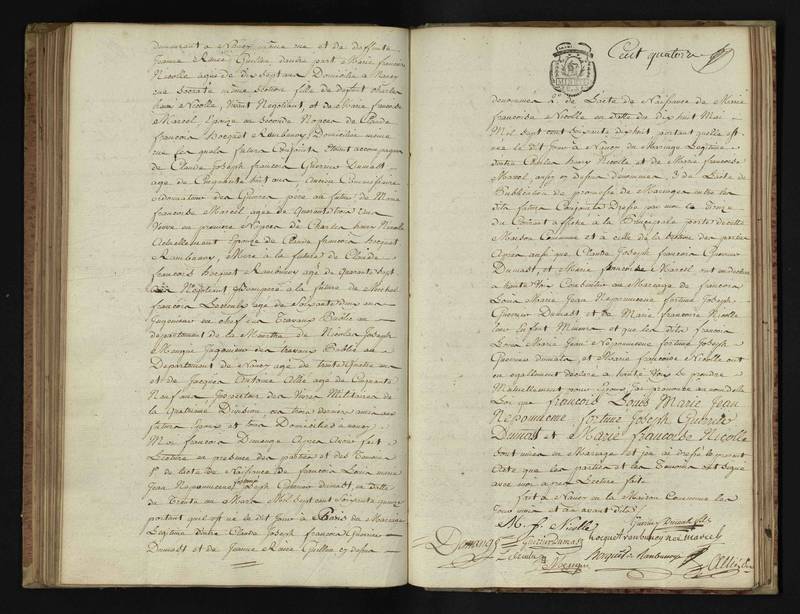 demeurant à Nancy même rue et de deffunte
Jeanne Rance Guillon dautre part Marie françoise
Nicolle agée de dix sept ans Domiciliée a Nancy
rue Socrate même section fille de deffunt charles
henri Nicolle, vivant Negotiant, et de Marie françoise
Marcel Epouse en seconde Nopces de Claude
françois Rambouroy Domiciliés même
rue les quels futurs Conjoints étoient accompagnés
de Claude Joseph francois Guerrier Dumast
age de Cinquante huit ans, Ancien Commissaire
ordonnateur des Guerres, pere au futur, de Marie
françoise Marcel agée de quarante trois ans
Veuve en premiere Nopces de Charles henry Nicolle
Actuellement Epouze de Claude françois
Mere à la future de Claude
françois age de quarante sept
ans Negotiant, à la future de Michel
françois Lecreulx age de soixante ans
Ingenieur en chef des Travaux Public au
département de la Meurthe de Nicolas Joseph
Mengin Ingenieur des travaux Public au
Departement de Nancy agé de trente quatre ans
et de Jacques Antoine Allié age de Cinquante
Neuf ans Inspecteur des Vivres Militaires de
la Quatrieme Division les trois derniers amis des
futurs Epoux et tous Domiciliés a Nancy
Moi francois Demange Apres Avoir fait
Lecture en presence des parties et des Temoins
1° de l'acte de Naissance de françois Louis marie
Jean Nepomucene fortuné Joseph Guerrier dumast, en datte
du Trente un Mars Mil Sept cent Soixante quinze
portant quil est né le dit Jour à Paris du Mariage
Legitime d'entre Claude Joseph françois Guerrier
Dumast et de Jeanne Rance Guillon
Cent quatorze
dénommés 2° de l'acte de Naissance de Marie
françoise Nicolle en datte du dix huit Mai
Mil Sept cent Soixante dix huit, portant quelle est
née le dit Jour à Nancy du Mariage Legitime
dentre Charles henry Nicolle et de Marie francoise
Marcel, aussy dénommés, 3° de l'acte de
Publication de promesse de Mariage entre les
dits futurs Conjoints Dressé par moi le Onze
du Courant affiché à la Principale porte de cette
Maison Commune et à celle de la des parties
Apres aussi que Claude Joseph francois Guerrier
Dumast, et Marie françoise Marcel ont declaré
a haute Voix Consentir au Mariage de francois
Louis Marie Jean Nepomucene fortuné Joseph
Guerrier Dumast et de Marie francoise Nicolle
leur Enfant Mineur et que les dits francois
Louis Marie Jean Nepomucene fortuné Joseph
Guerrier dumast, et Marie françoise Nicolle ont
eu egallement declaré à haute Voix se prendre
Mutuellement pour Epoux, J'ai prononcé au nom de la
Loi que françois Louis Marie Jean
Nepomucene fortuné Joseph Guerrier
Dumast et Marie françoise Nicolle
sont unis en Mariage et j'en ai dressé le present
Acte que les parties et les Temoins ont signé
avec moi apres Lecture faite
fait à Nancy en la Maison Commune les
Jour mois et an avant dits
M. f. Nicolle Guerrier Dumast fils
Demange Guerrier Dumast née marcel
Lecreulx Mengin Allié